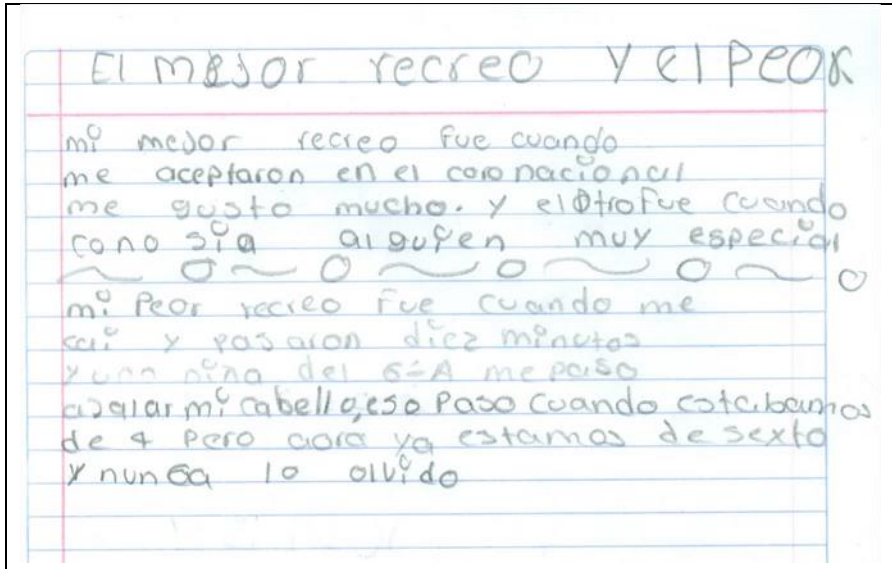 El mejor recreo y el peor
mi mejor recreo fue cuando
me aceptaron en el coro nacional
me gusto mucho. y el otro fue cuando
cono sia alguien muy especial
mi Peor recreo fue cuando me
cai y pasaron diez minutos
y una niña del 6-A me paso
a jalar mi cabello, eso Paso cuando estabamos
de 4 Pero aora ya estamos de sexto
y nunca lo olvido